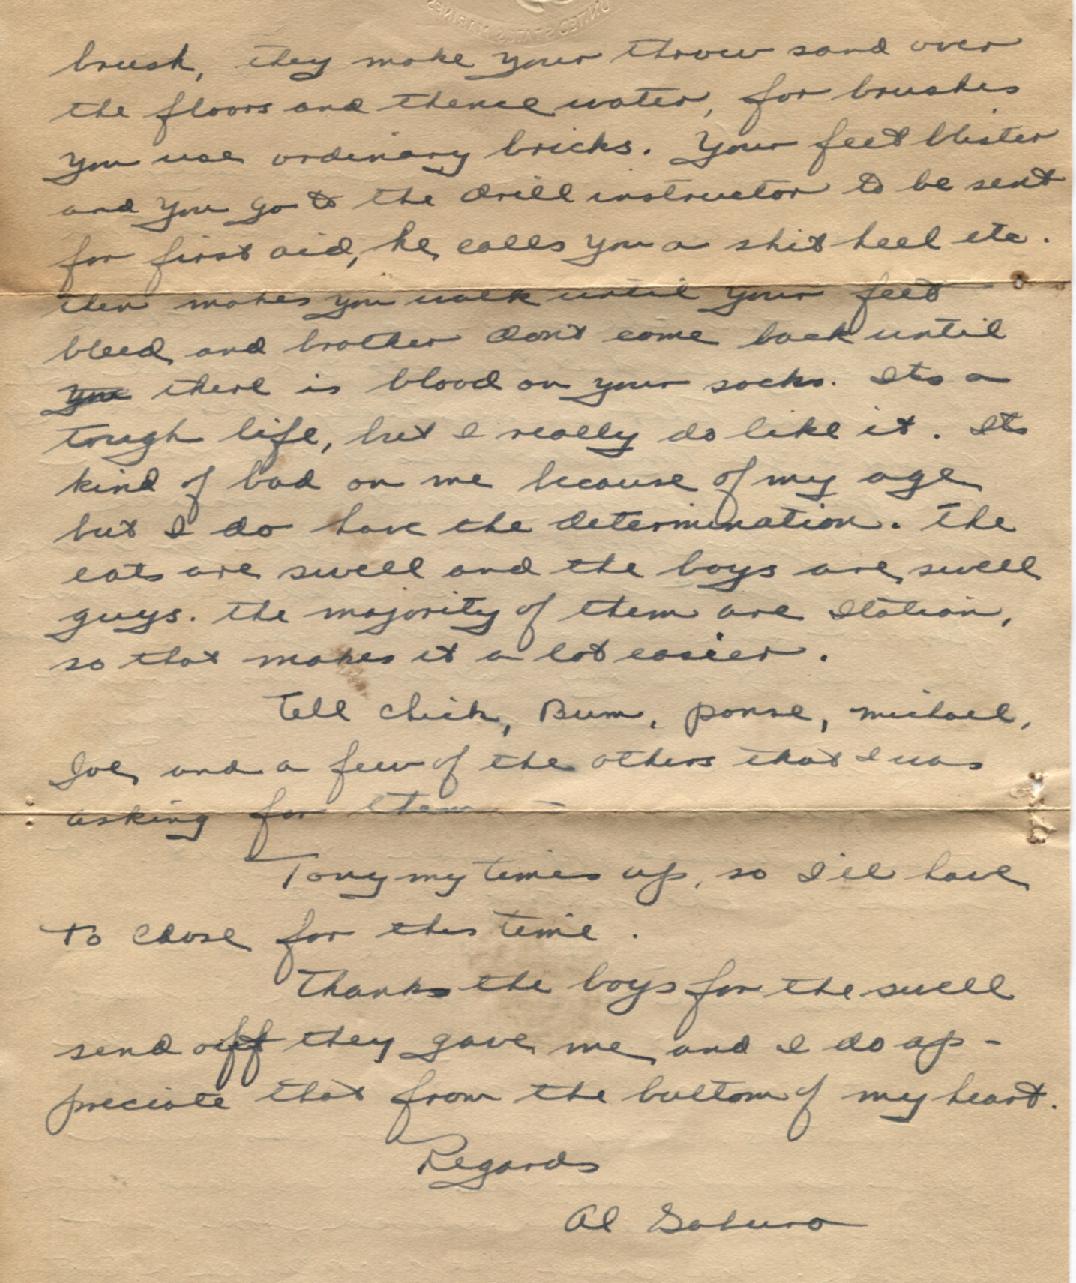 UNITED STATES MARINES
brush, they make your throw sand over
the floors and thence water, for brushes
you use ordinary bricks. Your feet blister
and you go to the drill instructor to be sent
for first aid, he calls you a shit heel etc.
then makes you walk until your feet
bleed and brother don't come back until
you there is blood on your socks. Its a
tough life, but I really do like it. Its
kind of bad on me because of my age
but I do have the determination. The
eats are swell and the boys are swell
guys. the majority of them are Italian,
so that makes it a lot easier.
Tell chick, Bum, ponse, michael,
Joe, and a few of the others that I was
asking for them
Tony my times up, so I'll have
to close for this time.
Thanks the boys for the swell
send off they gave me and I do ap-
preciate that from the bottom of my heart.
Regards
Al